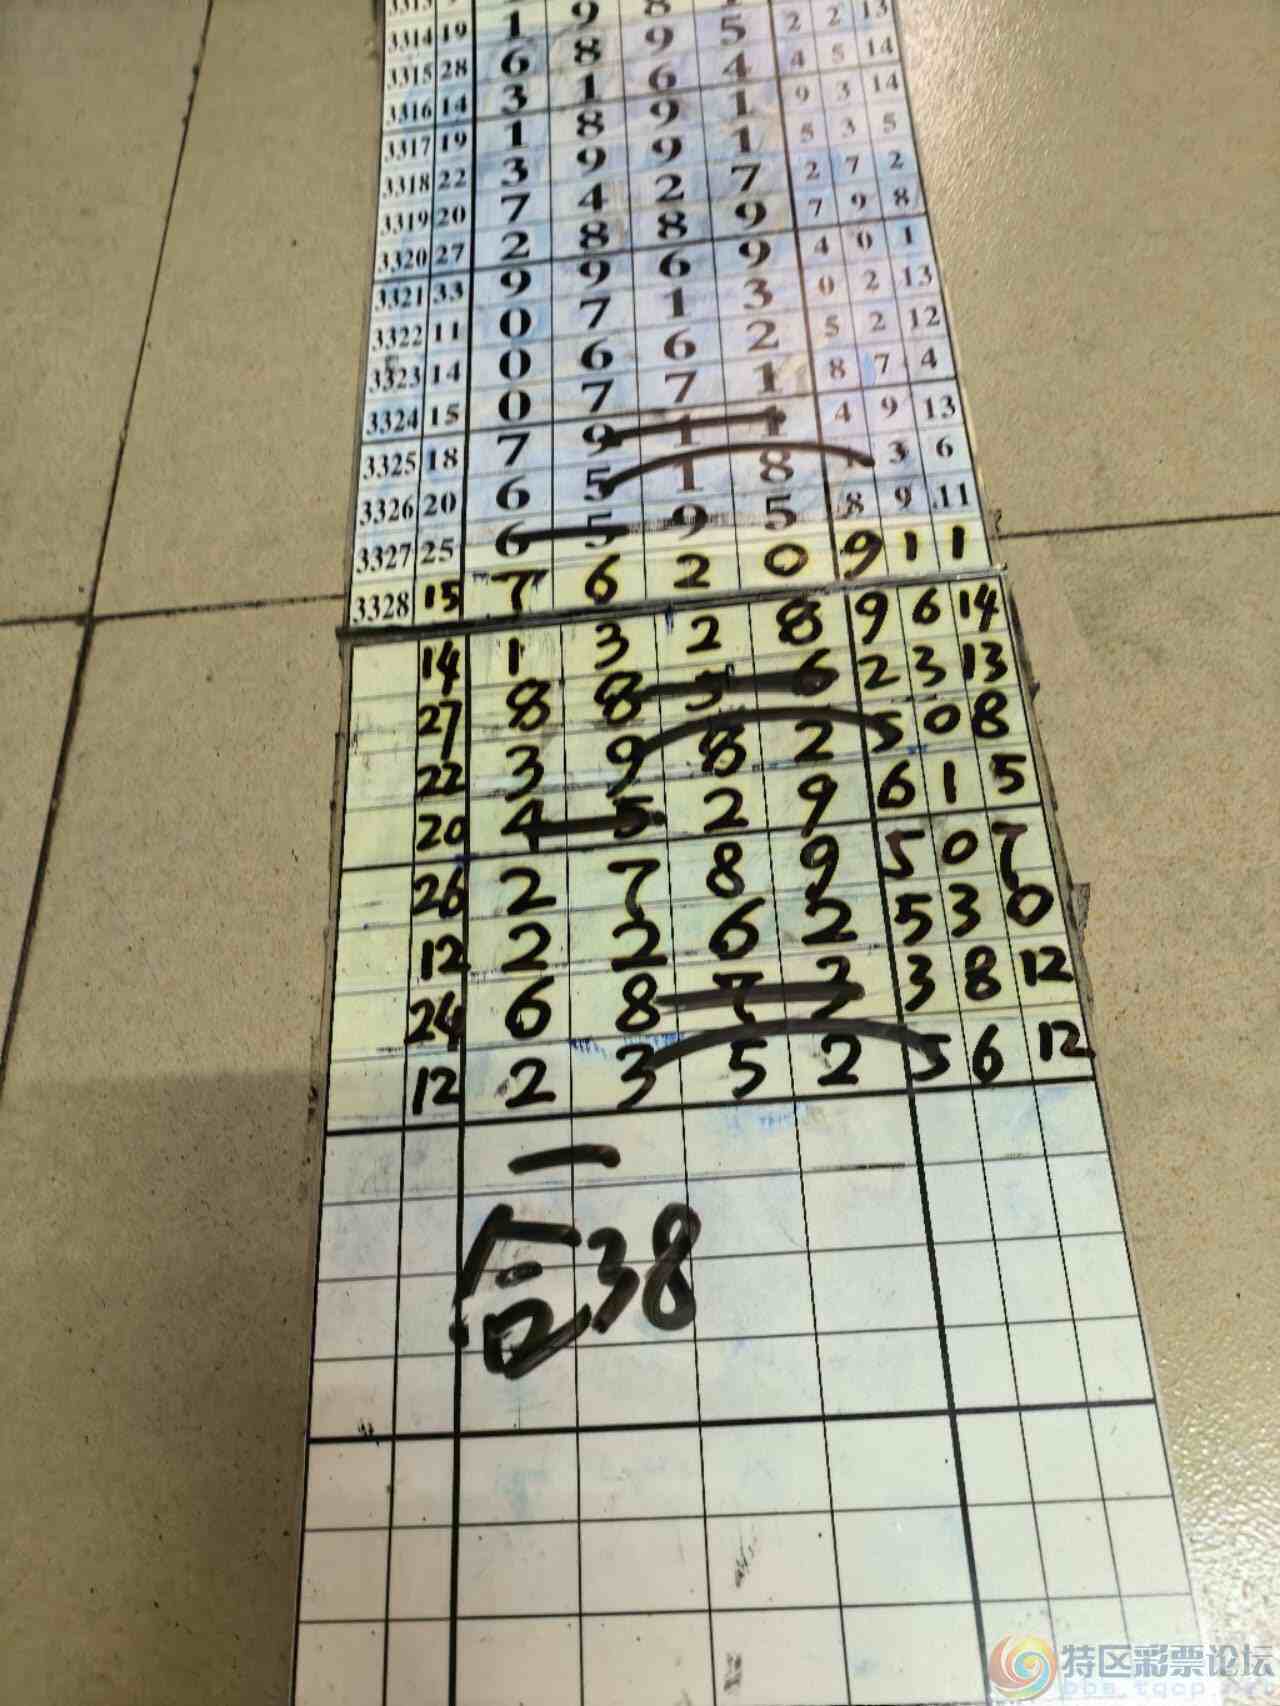 3314 19 1 9 8
3315 28 6 8 9 5 2 2 13
3316 14 3 1 6 4 4 5 14
3317 19 1 8 9 1 9 3 14
3318 22 3 9 9 1 5 3 5
3319 20 7 4 2 7 2 7 2
3320 27 2 8 8 9 7 9 8
3321 33 9 9 6 9 4 0 1
3322 11 0 7 1 3 0 2 13
3323 14 0 6 6 2 5 2 12
3324 15 0 7 7 1 8 7 4
3325 18 7 9 1 1 4 9 13
3326 20 6 5 1 8 1 3 6
3327 25 6 5 9 5 8 9 11
3328 15 7 6 2 0 9 1 1
14 1 3 2 8 9 6 14
27 8 8 5 6 2 3 13
22 3 9 8 2 5 0 8
20 4 5 2 9 6 1 5
26 2 7 8 9 5 0 7
12 2 2 6 2 5 3 0
24 6 8 7 3 3 8 12
12 2 3 5 2 5 6 12
一
合38
特区彩票论坛
bbs.tqcp.net